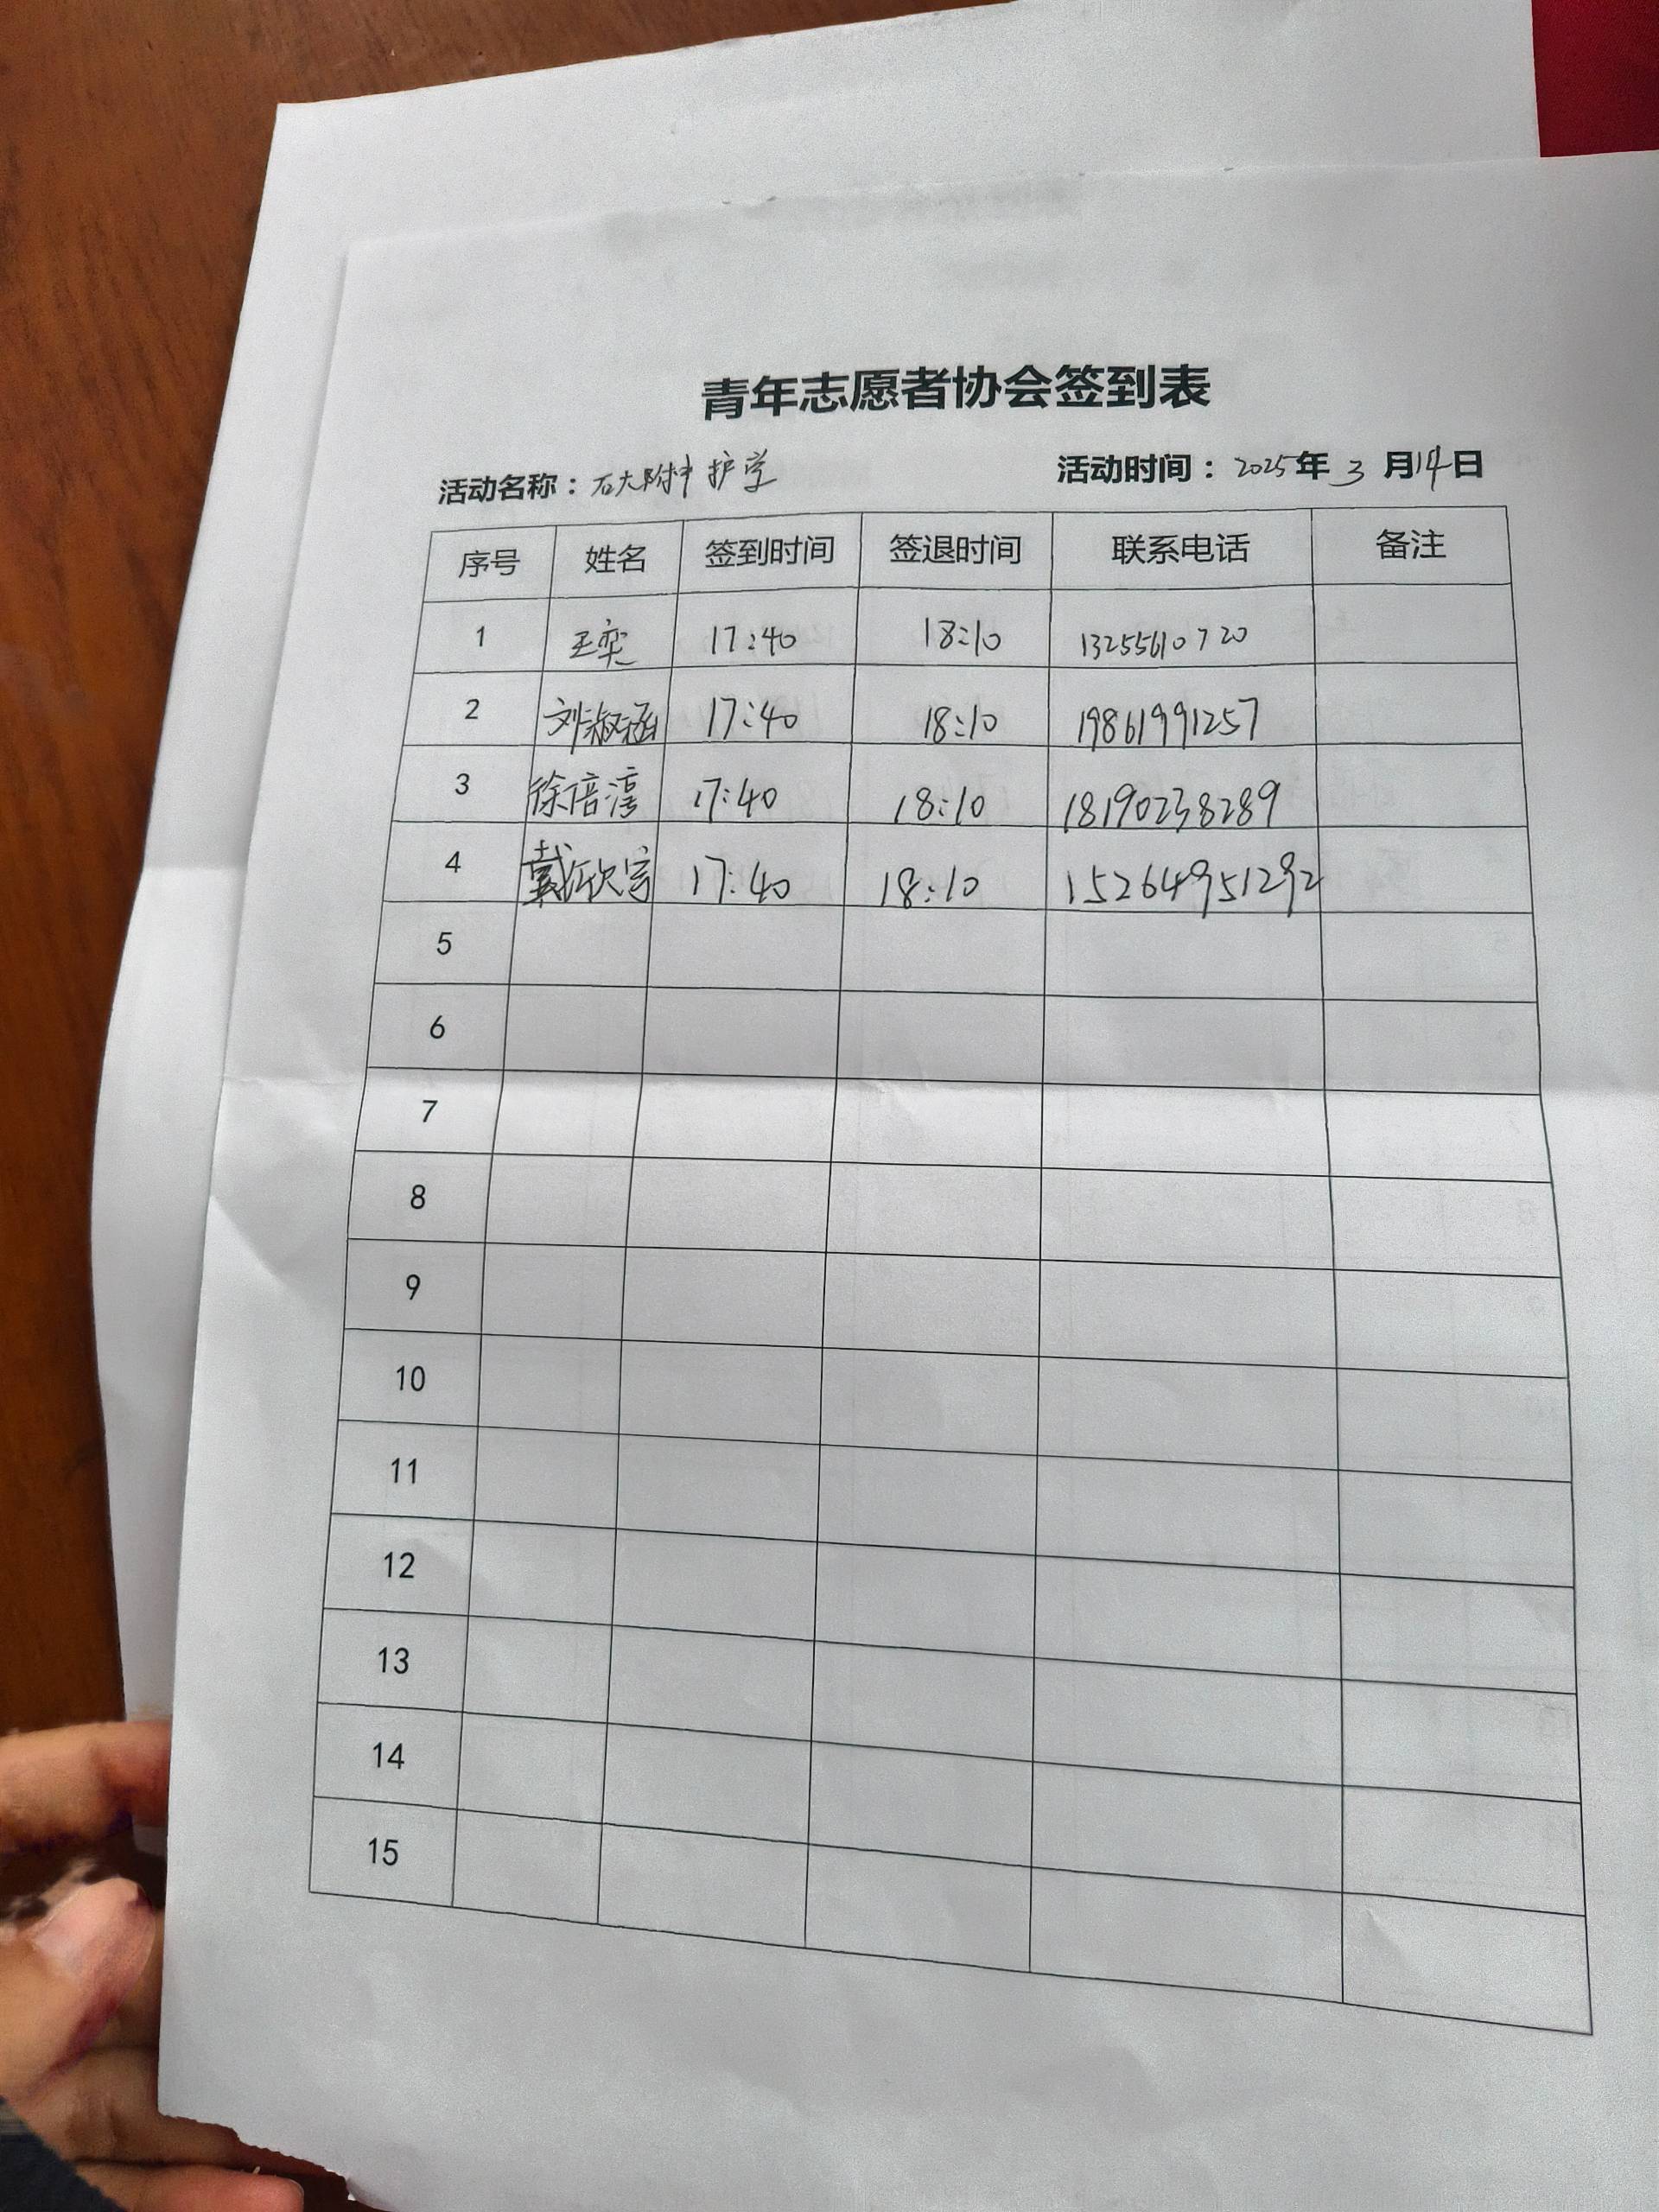 青年志愿者协会签到表
活动名称：石大附中护学 活动时间：2025年3月14日
序号 姓名 签到时间 签退时间 联系电话 备注
1 王奕 17:40 18:10 13255610720
2 刘淑涵 17:40 18:10 19861991257
3 徐倍淳 17:40 18:10 18190238289
4 戴欣宫 17:40 18:10 15264951292
5
6
7
8
9
10
11
12
13
14
15